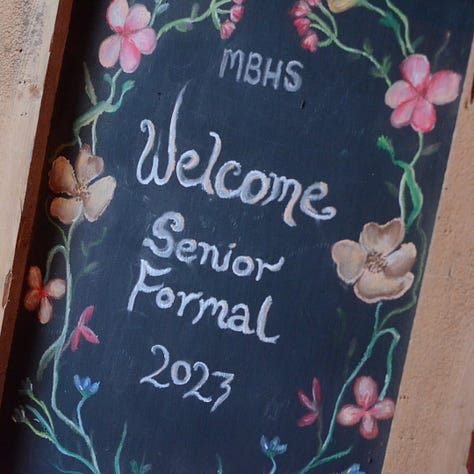 MBHS
Welcome
Senior
Formal
2023